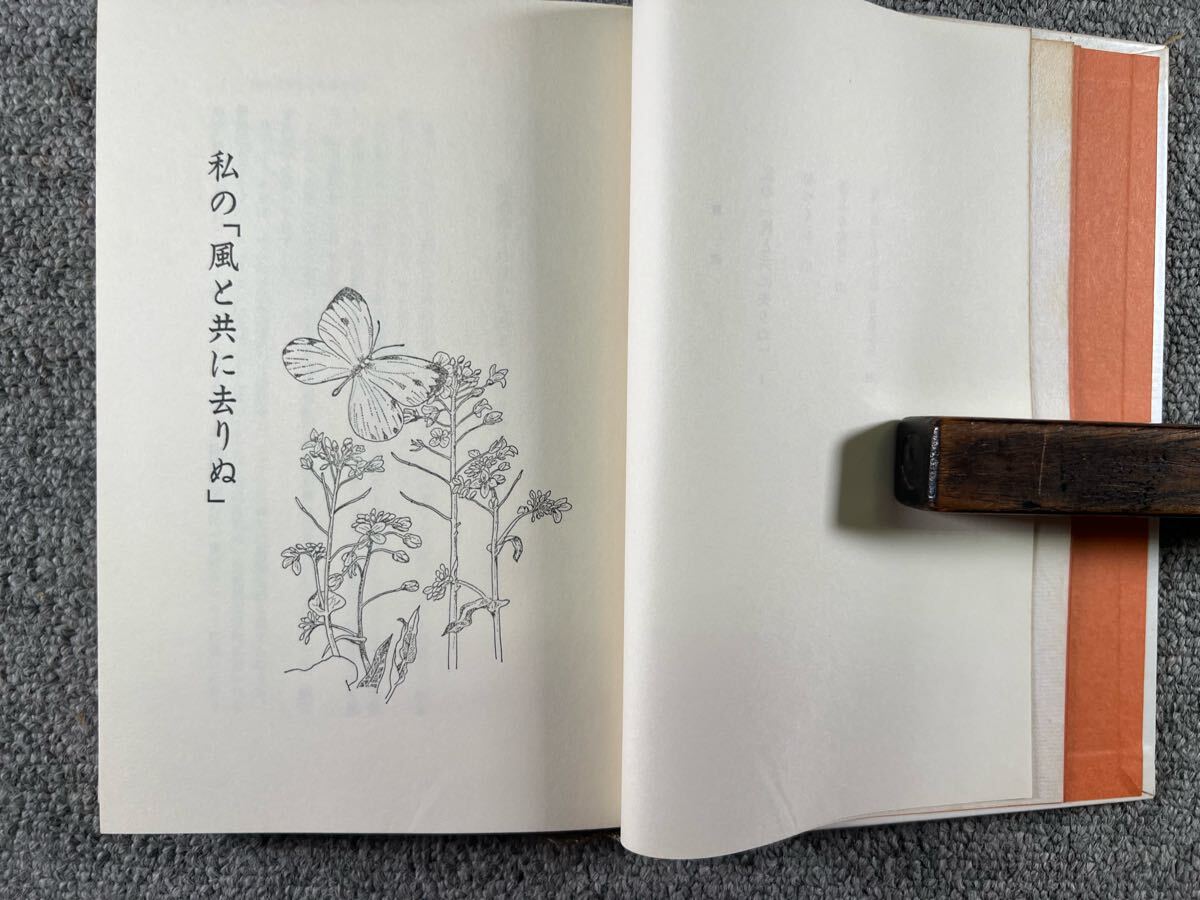 私の「風と共に去りぬ」